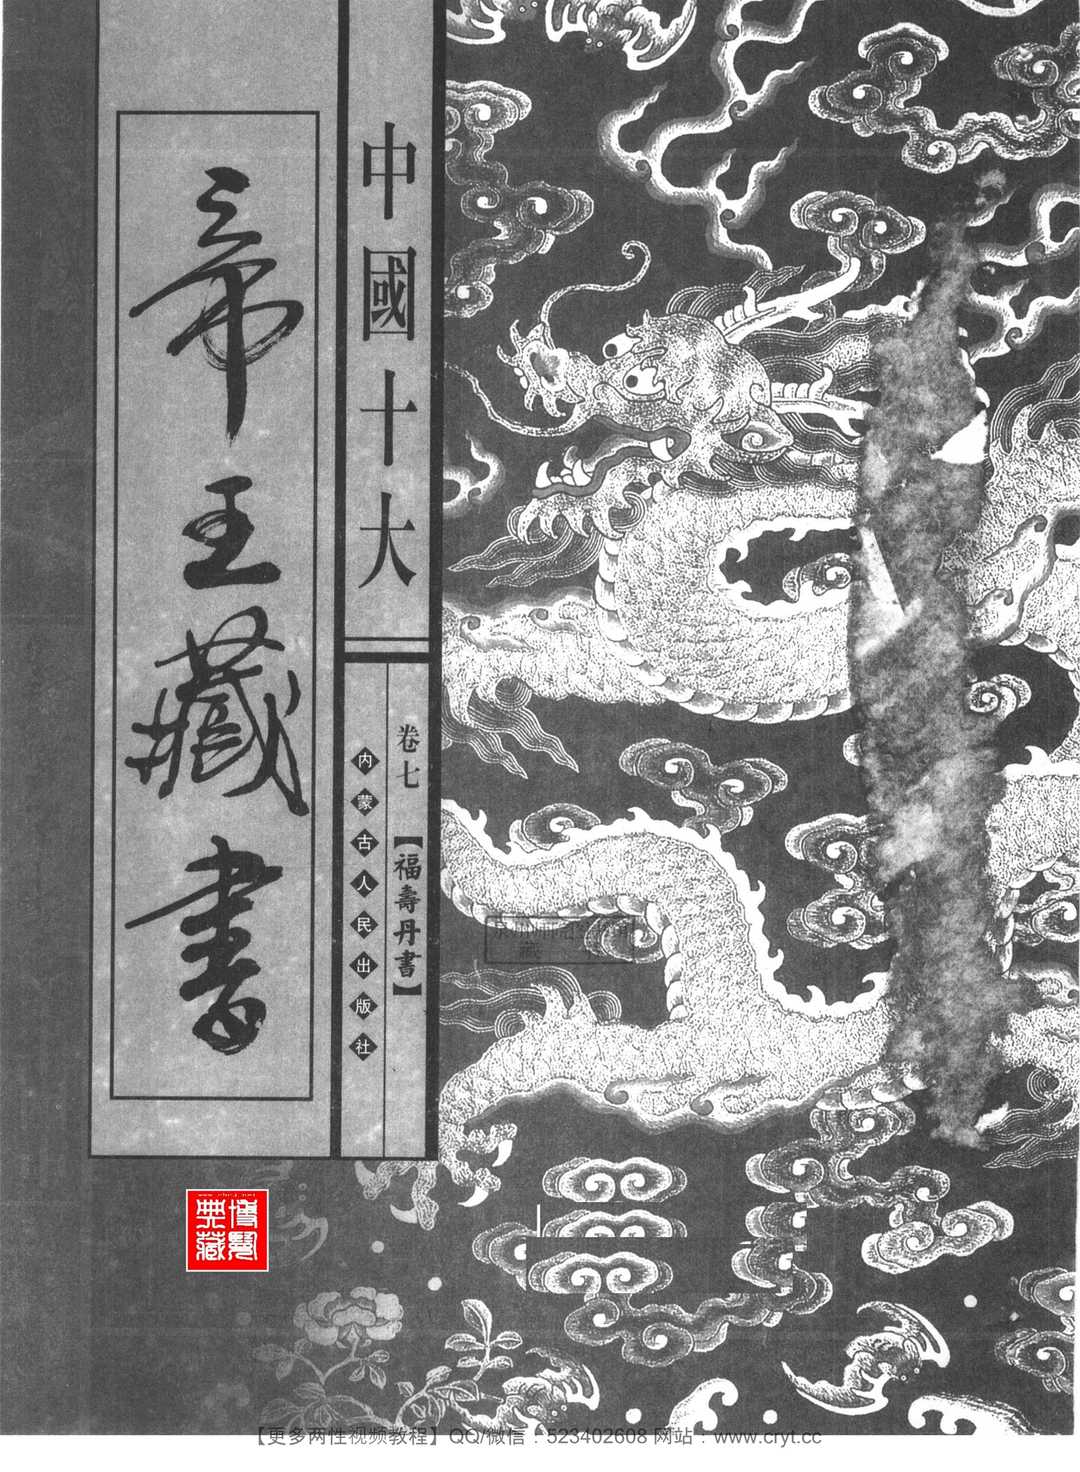 中國十大
帝王藏書
卷七
【福壽丹書】
内蒙古人民出版社
博賢
典藏
【更多两性视频教程】QQ/微信：523402608 网站：www.cryt.cc